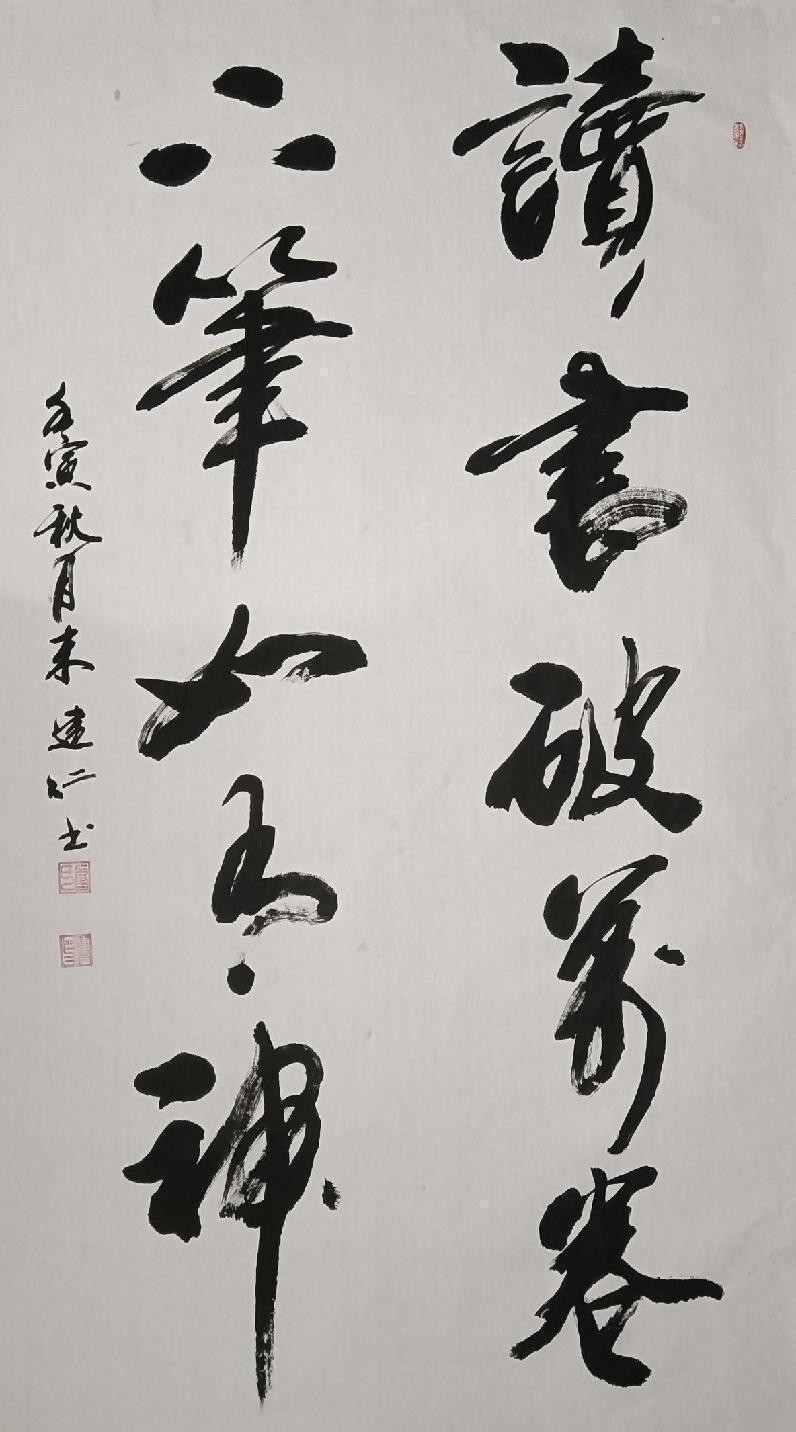 讀書破萬卷
下筆如有神
壬寅秋月末建仁书